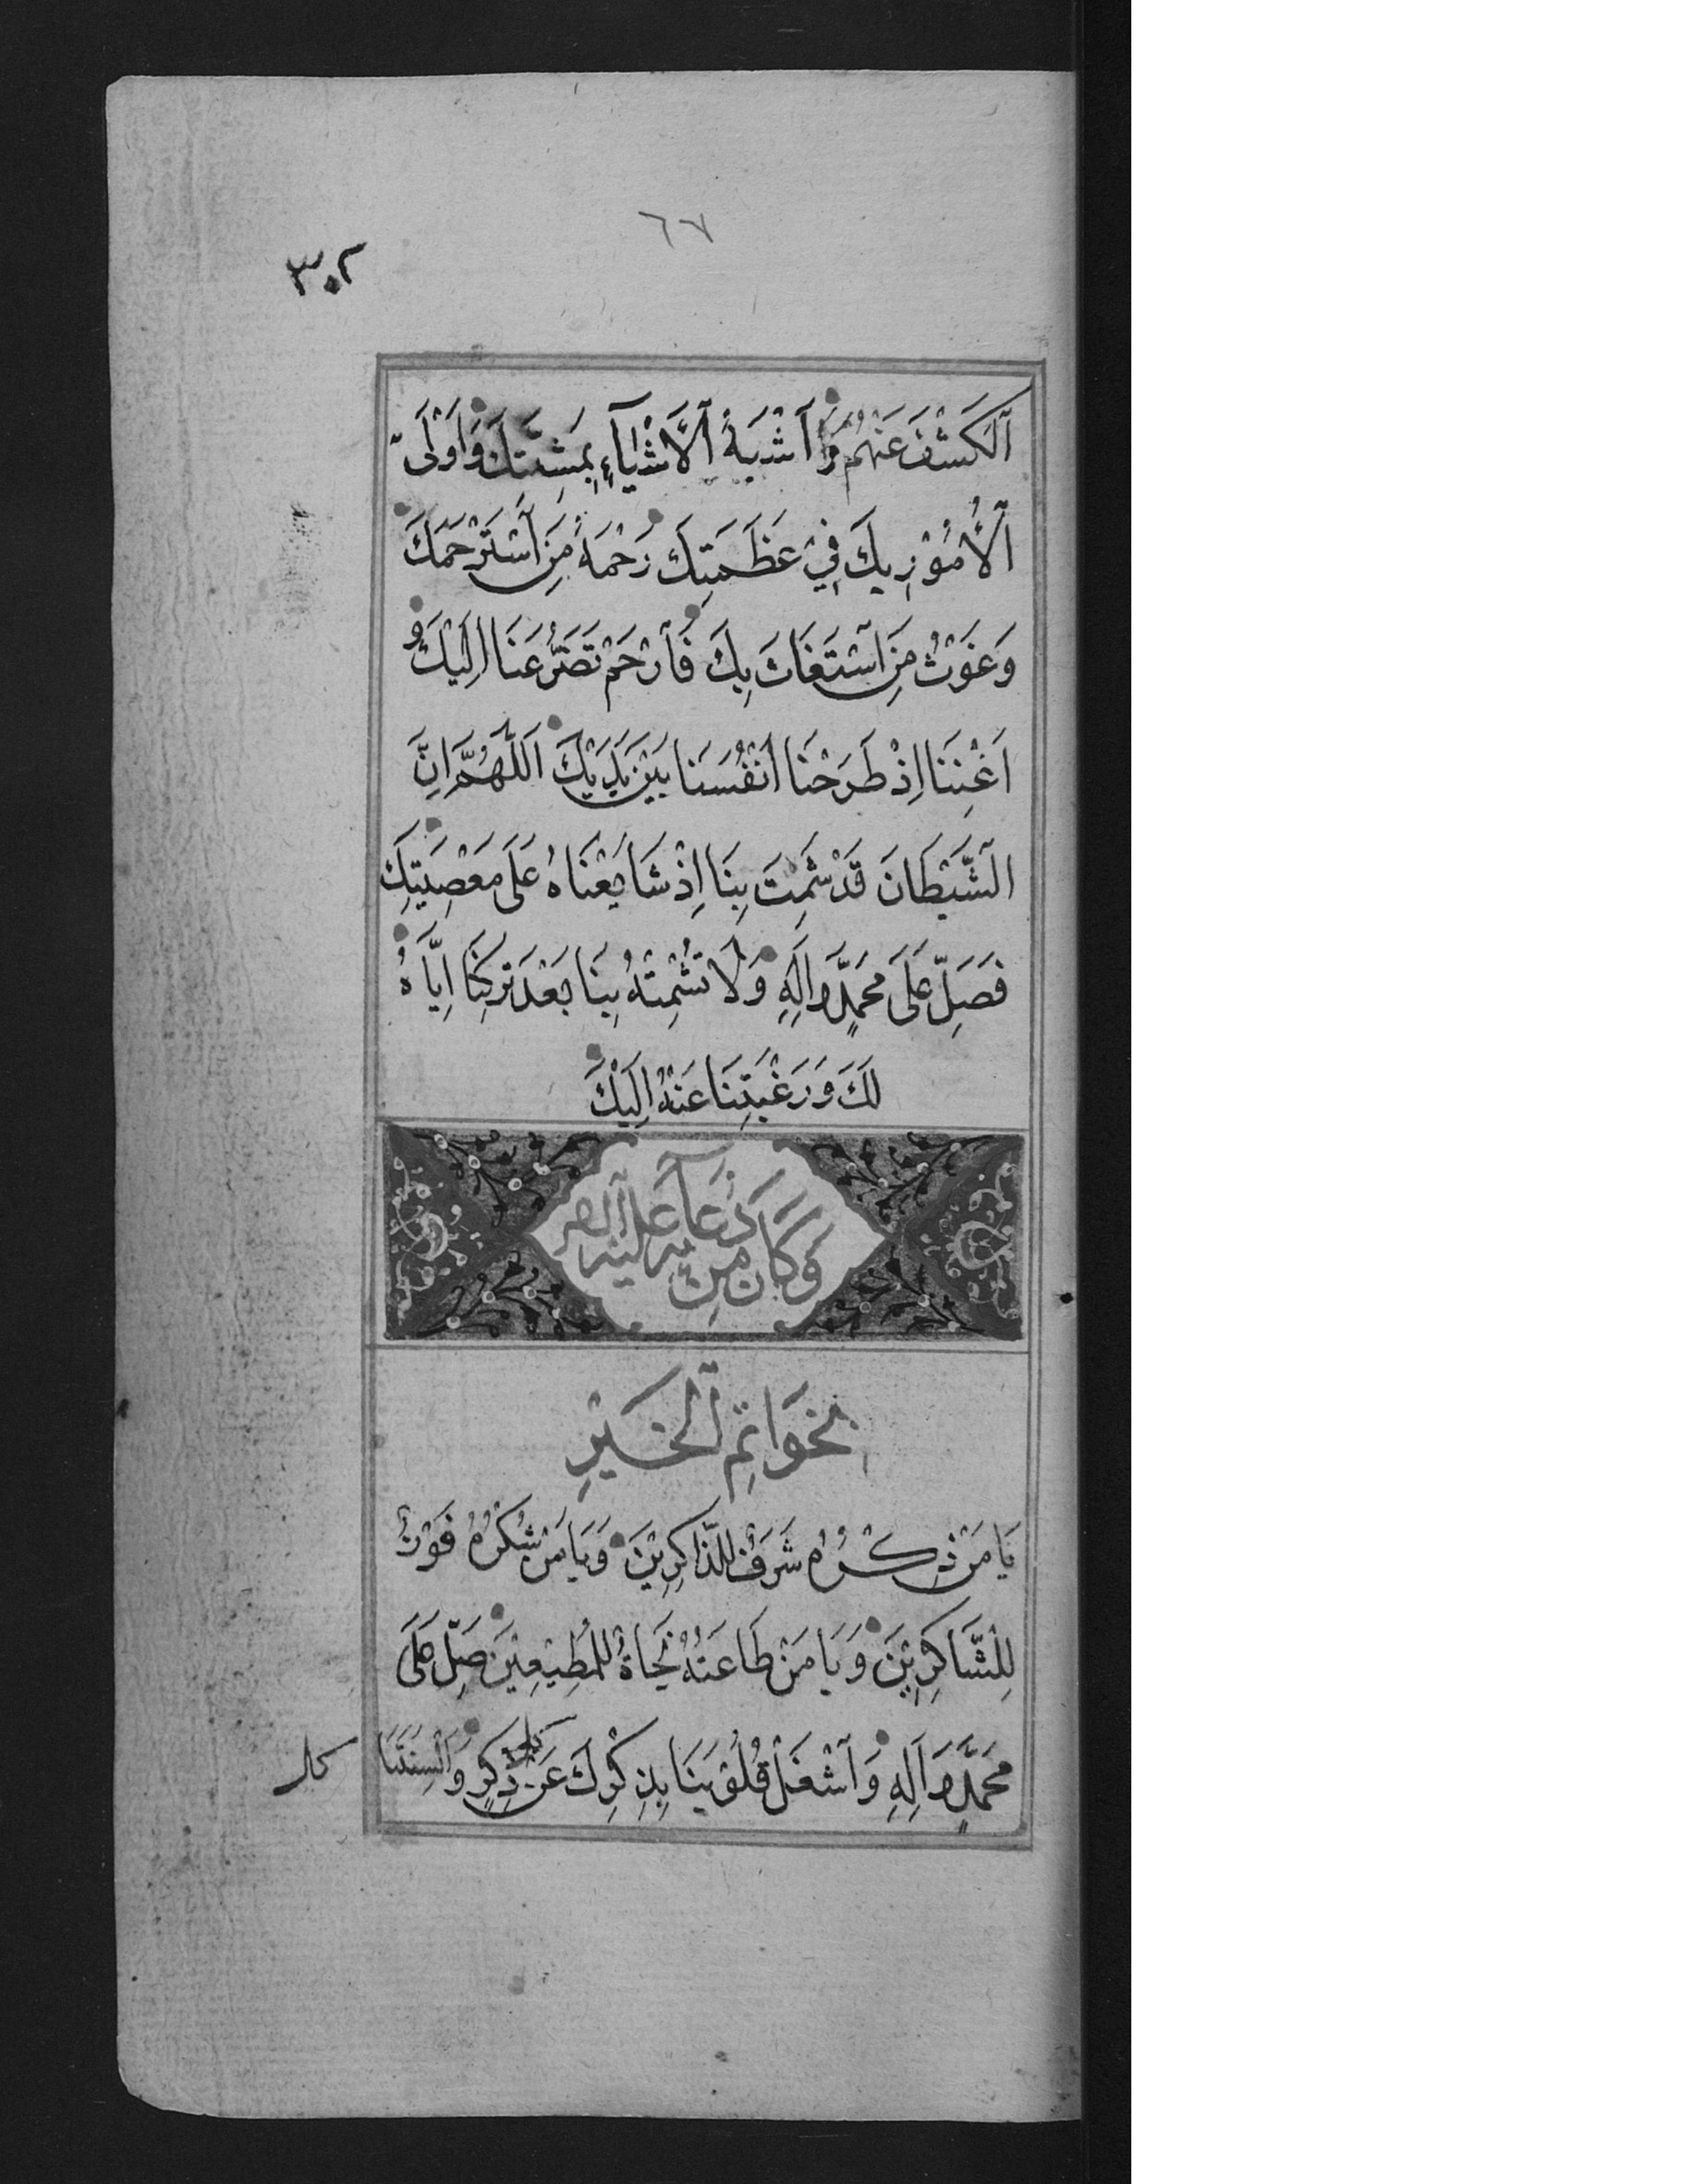 ٦٧
٣٠٢
اَلْكَشْفَ عَنْهُمْ وَاَشْبَهُ اَلْاَشْيَآءِ بِمَشِيَّتِكَ وَاَوْلَى
اَلْاُمُوْرِ بِكَ فِيْ عَظَمَتِكَ رَحْمَةُ مَنِ اَسْتَرْحَمَكَ
وَغَوْثُ مَنِ اَسْتَغَاثَ بِكَ فَاَرْحَمْ تَضَرُّعَنَا اِلَيْكَ وَ
اَغْنِنَا اِذْ طَرَحْنَا اَنْفُسَنَا بَيْنَ يَدَيْكَ اَللّٰهُمَّ اِنَّ
الشَّيْطَانَ قَدْ شَمِتَ بِنَا اِذْ شَايَعْنَاهُ عَلَى مَعْصِيَتِكَ
فَصَلِّ عَلَى مُحَمَّدٍ وَاٰلِهِ وَلَا تُشْمِتْهُ بِنَا بَعْدَ تَرْكِنَا اِيَّاهُ
لَكَ وَرَغْبَتِنَا عَنْهُ اِلَيْكَ
وَكَانَ مِنْ دُعَآئِهِ عَلَيْهِ
بِخَوَاتِمِ اَلْخَيْرِ
يَا مَنْ ذِكْرُهُ شَرَفٌ لِلذَّاكِرِيْنَ وَيَا مَنْ شُكْرُهُ فَوْزٌ
لِلشَّاكِرِيْنَ وَيَا مَنْ طَاعَتُهُ نَجَاةٌ لِلْمُطِيْعِيْنَ صَلِّ عَلَى
مُحَمَّدٍ وَاٰلِهِ وَاَشْغَلْ قُلُوْبَنَا بِذِكْرِكَ عَنْ كُلِّ ذِكْرٍ وَاَلْسِنَتَنَا